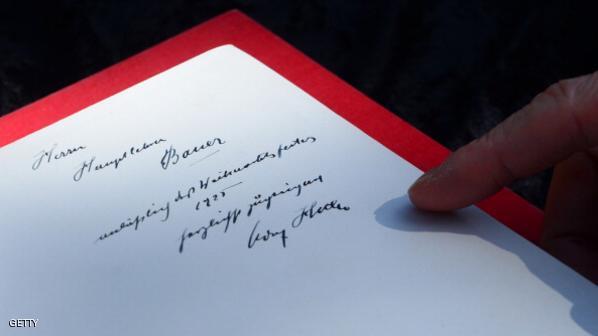 Herrn
Hauptlehrer Bauer
anläßlich des Weihnachtsfestes
1925
herzlichst zugeeignet
Adolf Hitler
GETTY